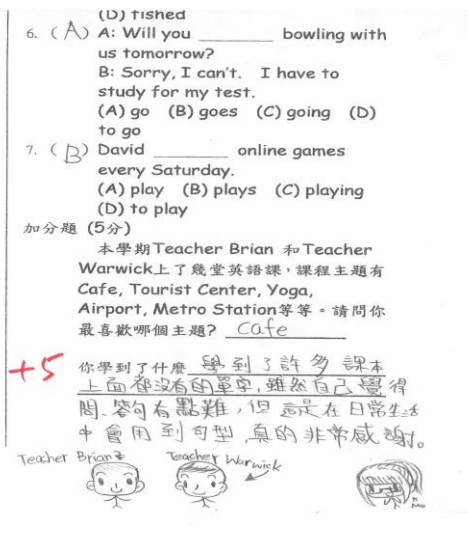 (D) fished
6. (A) A: Will you ________ bowling with
us tomorrow?
B: Sorry, I can't. I have to
study for my test.
(A) go (B) goes (C) going (D)
to go
7. (B) David ________ online games
every Saturday.
(A) play (B) plays (C) playing
(D) to play
加分題 (5分)
本學期Teacher Brian 和Teacher
Warwick上了幾堂英語課，課程主題有
Cafe, Tourist Center, Yoga,
Airport, Metro Station等等。請問你
最喜歡哪個主題? cafe
+5
你學到了什麼 學到了許多課本
上面都沒有的單字，雖然自己覺得
問、答句有點難，但這是在日常生活
中會用到句型，真的非常感謝。
Teacher Brian
Teacher Warwick